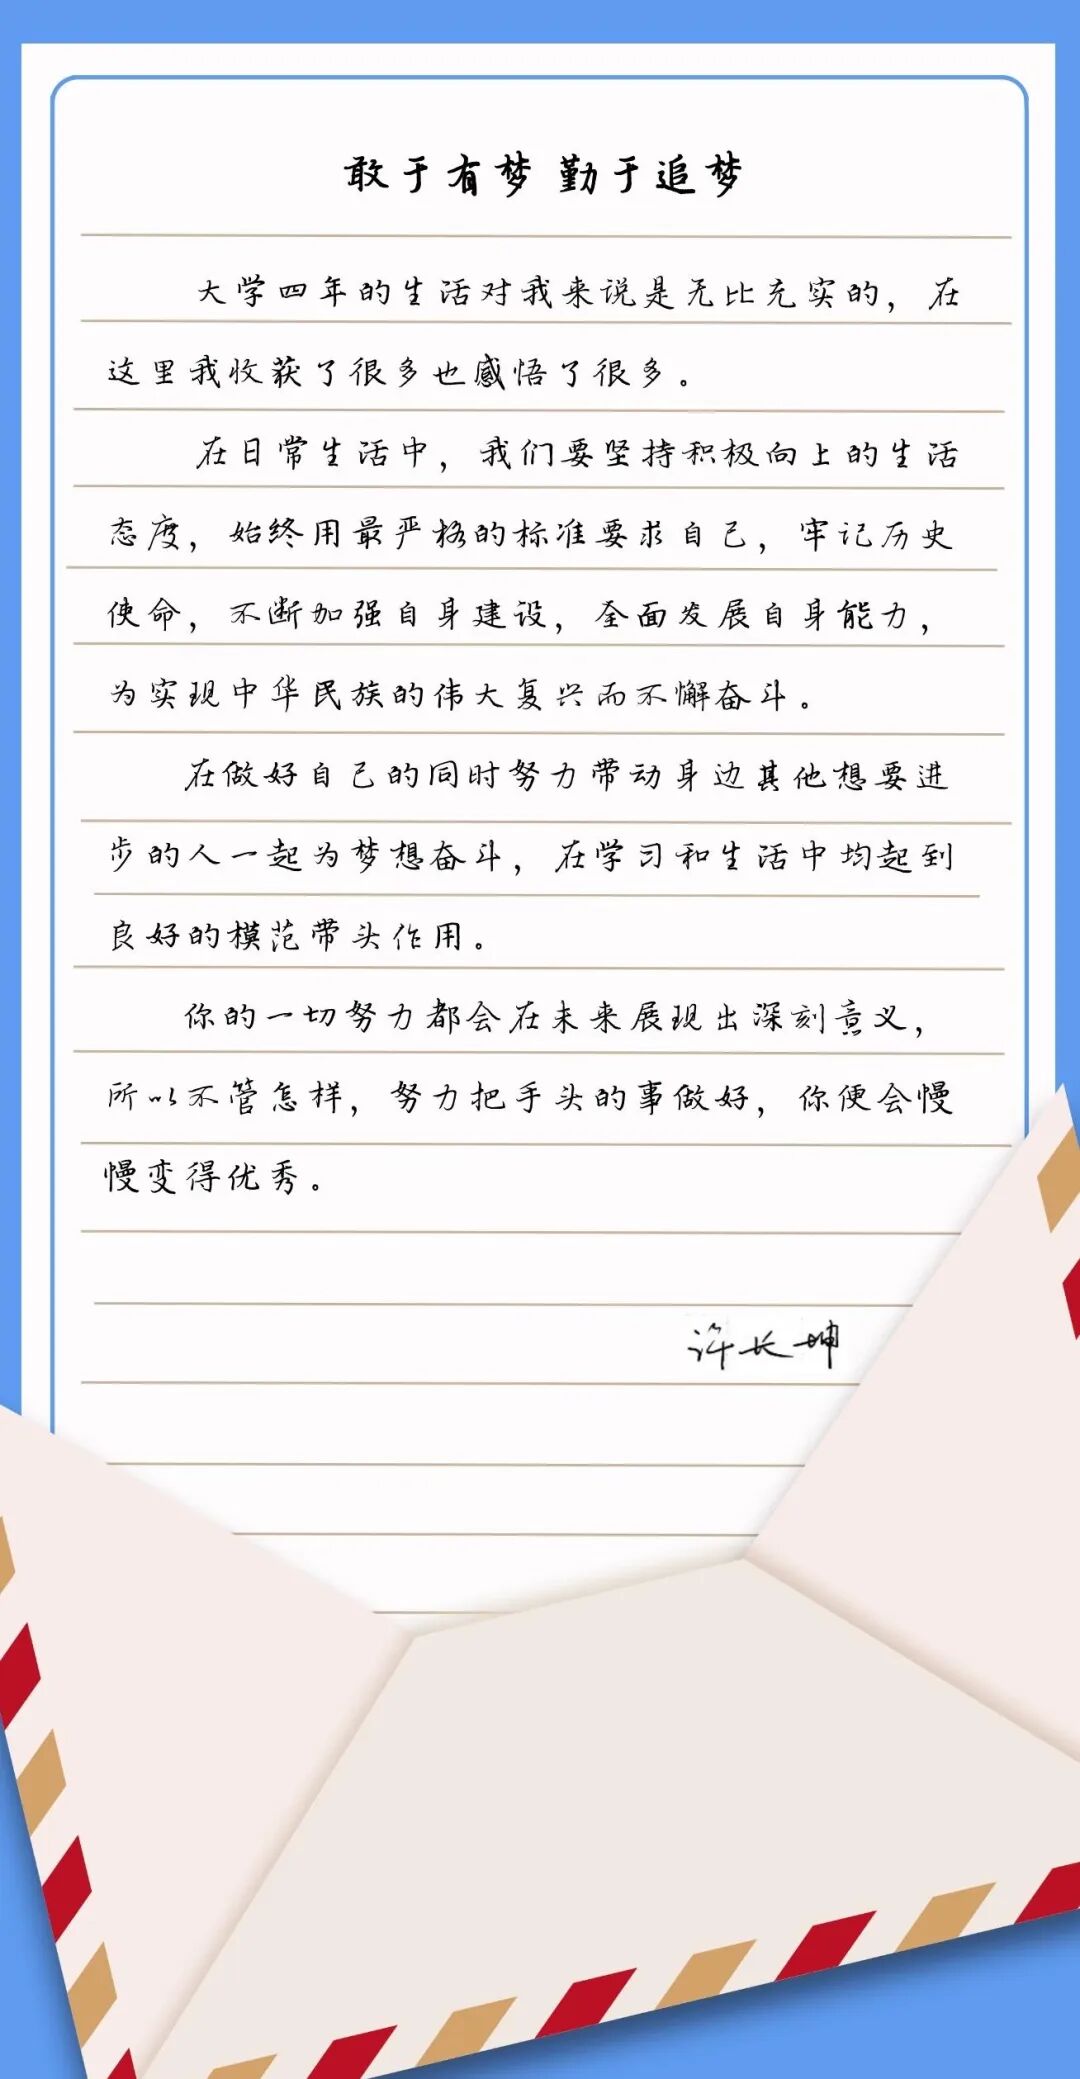 敢于有梦 勤于追梦
大学四年的生活对我来说是无比充实的，在
这里我收获了很多也感悟了很多。
在日常生活中，我们要坚持积极向上的生活
态度，始终用最严格的标准要求自己，牢记历史
使命，不断加强自身建设，全面发展自身能力，
为实现中华民族的伟大复兴而不懈奋斗。
在做好自己的同时努力带动身边其他想要进
步的人一起为梦想奋斗，在学习和生活中均起到
良好的模范带头作用。
你的一切努力都会在未来展现出深刻意义，
所以不管怎样，努力把手头的事做好，你便会慢
慢变得优秀。
许长坤